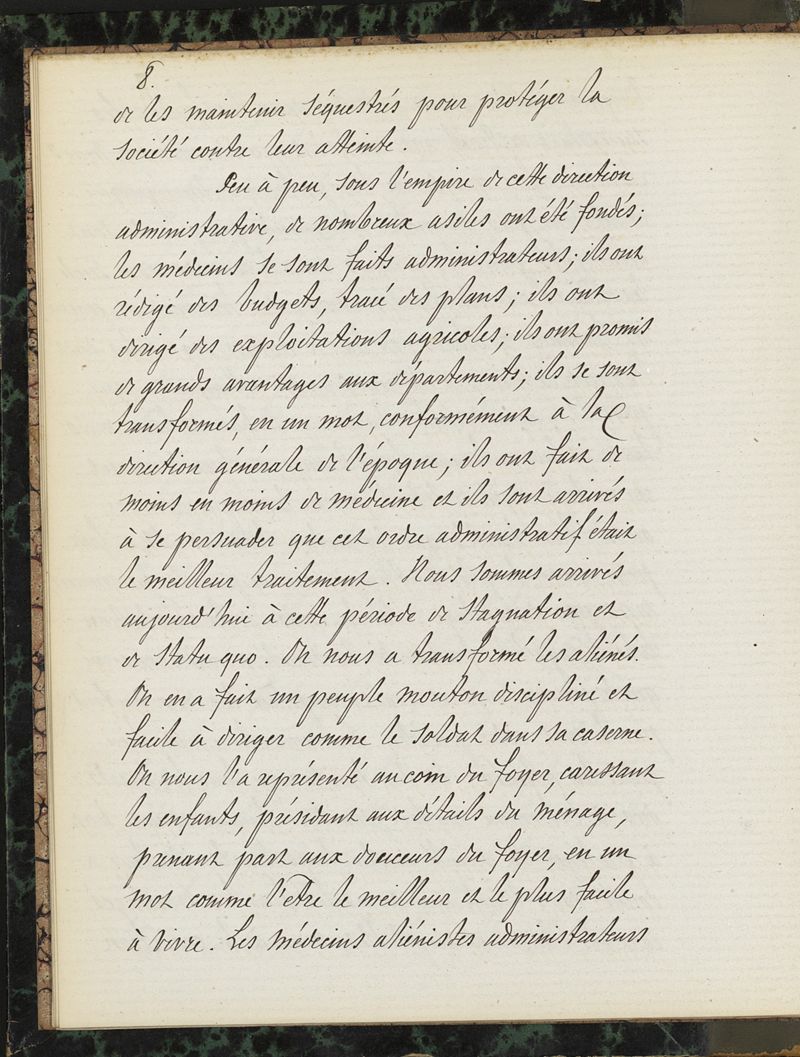 8.
de les maintenir séquestrés pour protéger la
société contre leur atteinte.
Peu à peu, sous l'empire de cette direction
administrative, de nombreux asiles ont été fondés;
les médecins se sont faits administrateurs; ils ont
rédigé des budgets, tracé des plans; ils ont
dirigé des exploitations agricoles; ils ont promis
de grands avantages aux départements; ils se sont
transformés, en un mot, conformément à la
direction générale de l'époque; ils ont fait de
moins en moins de médecine et ils sont arrivés
à se persuader que cet ordre administratif était
le meilleur traitement. Nous sommes arrivés
aujourd'hui à cette période de stagnation et
de statu quo. On nous a transformé les aliénés.
On en a fait un peuple mouton discipliné et
facile à diriger comme le soldat dans sa caserne.
On nous l'a représenté au coin du foyer, caressant
les enfants, présidant aux détails du ménage,
prenant part aux douceurs du foyer, en un
mot comme l'être le meilleur et le plus facile
à vivre. Les médecins aliénistes administrateurs